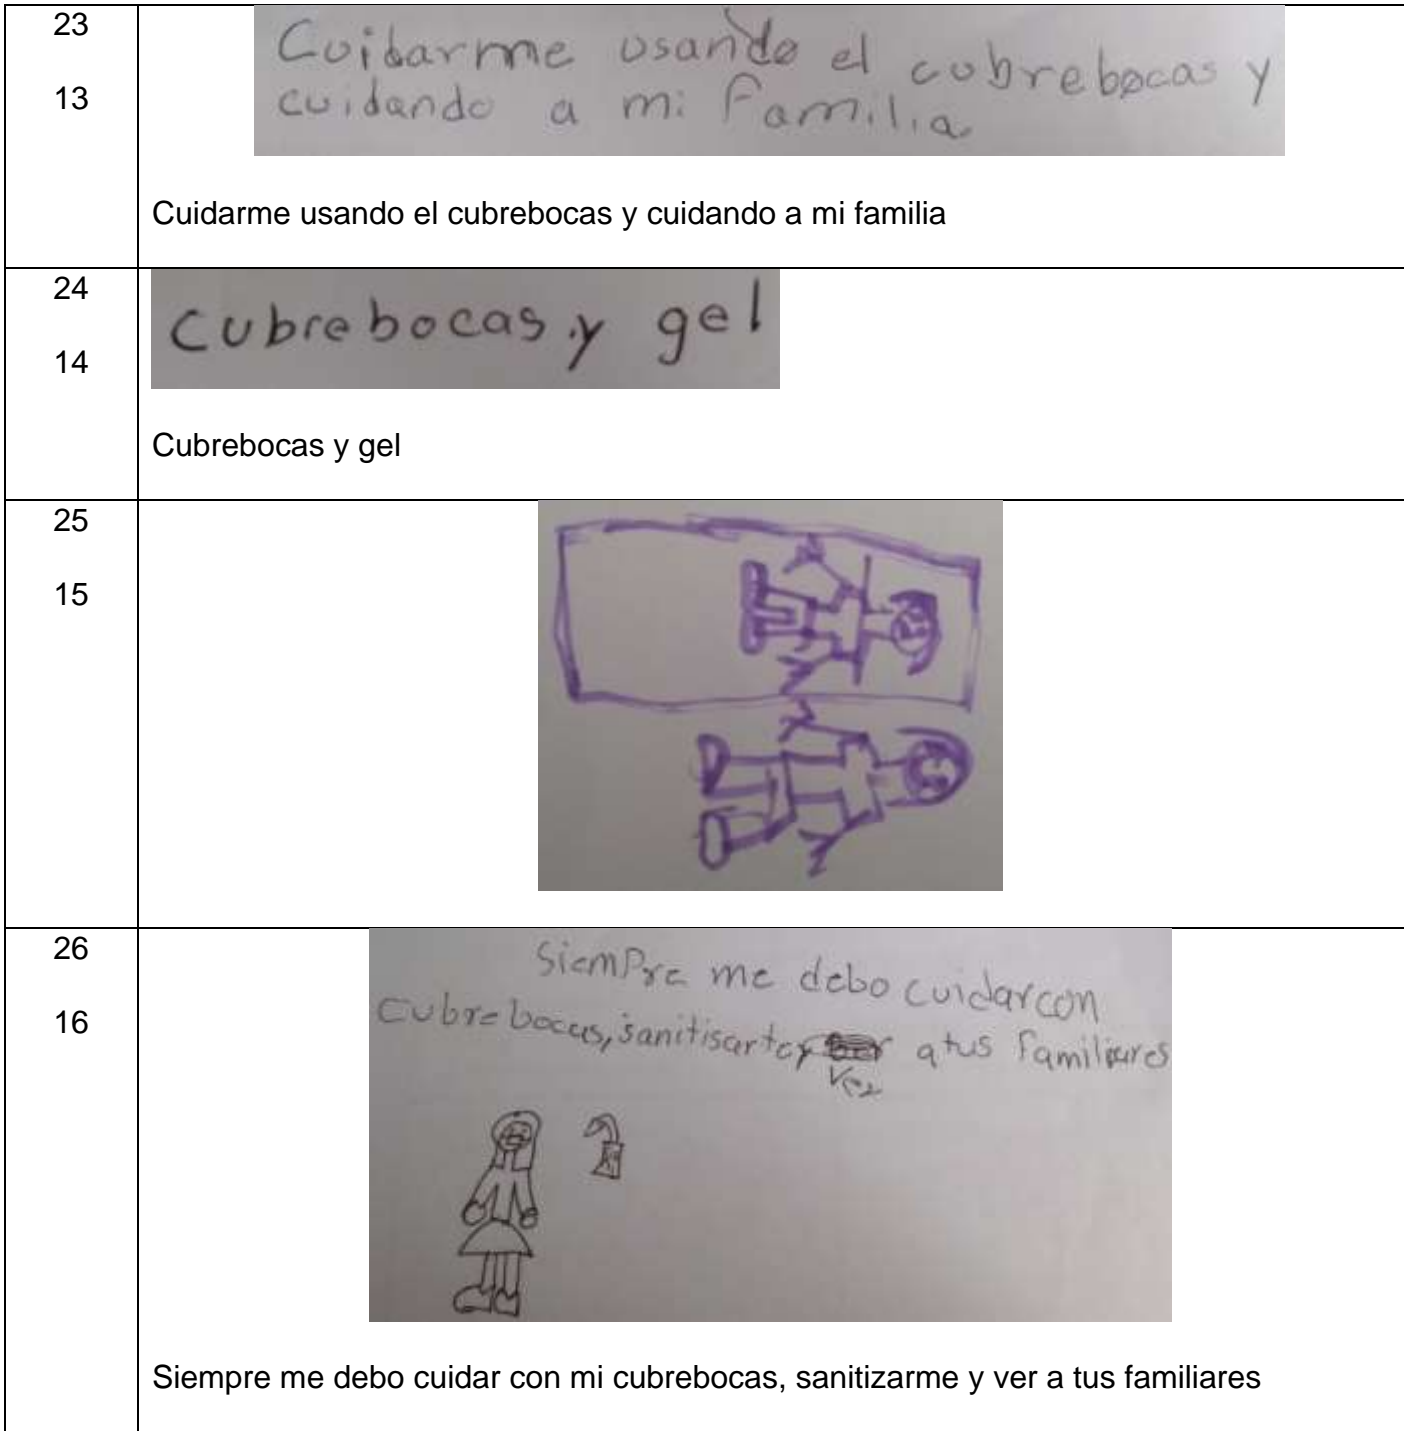 23
13
Cuidarme usando el cubrebocas y
cuidando a mi familia
Cuidarme usando el cubrebocas y cuidando a mi familia
24
14
Cubrebocas y gel
Cubrebocas y gel
25
15
26
16
Siempre me debo cuidar con
Cubrebocas, sanitisarte y a tus familiares
Siempre me debo cuidar con mi cubrebocas, sanitizarme y ver a tus familiares